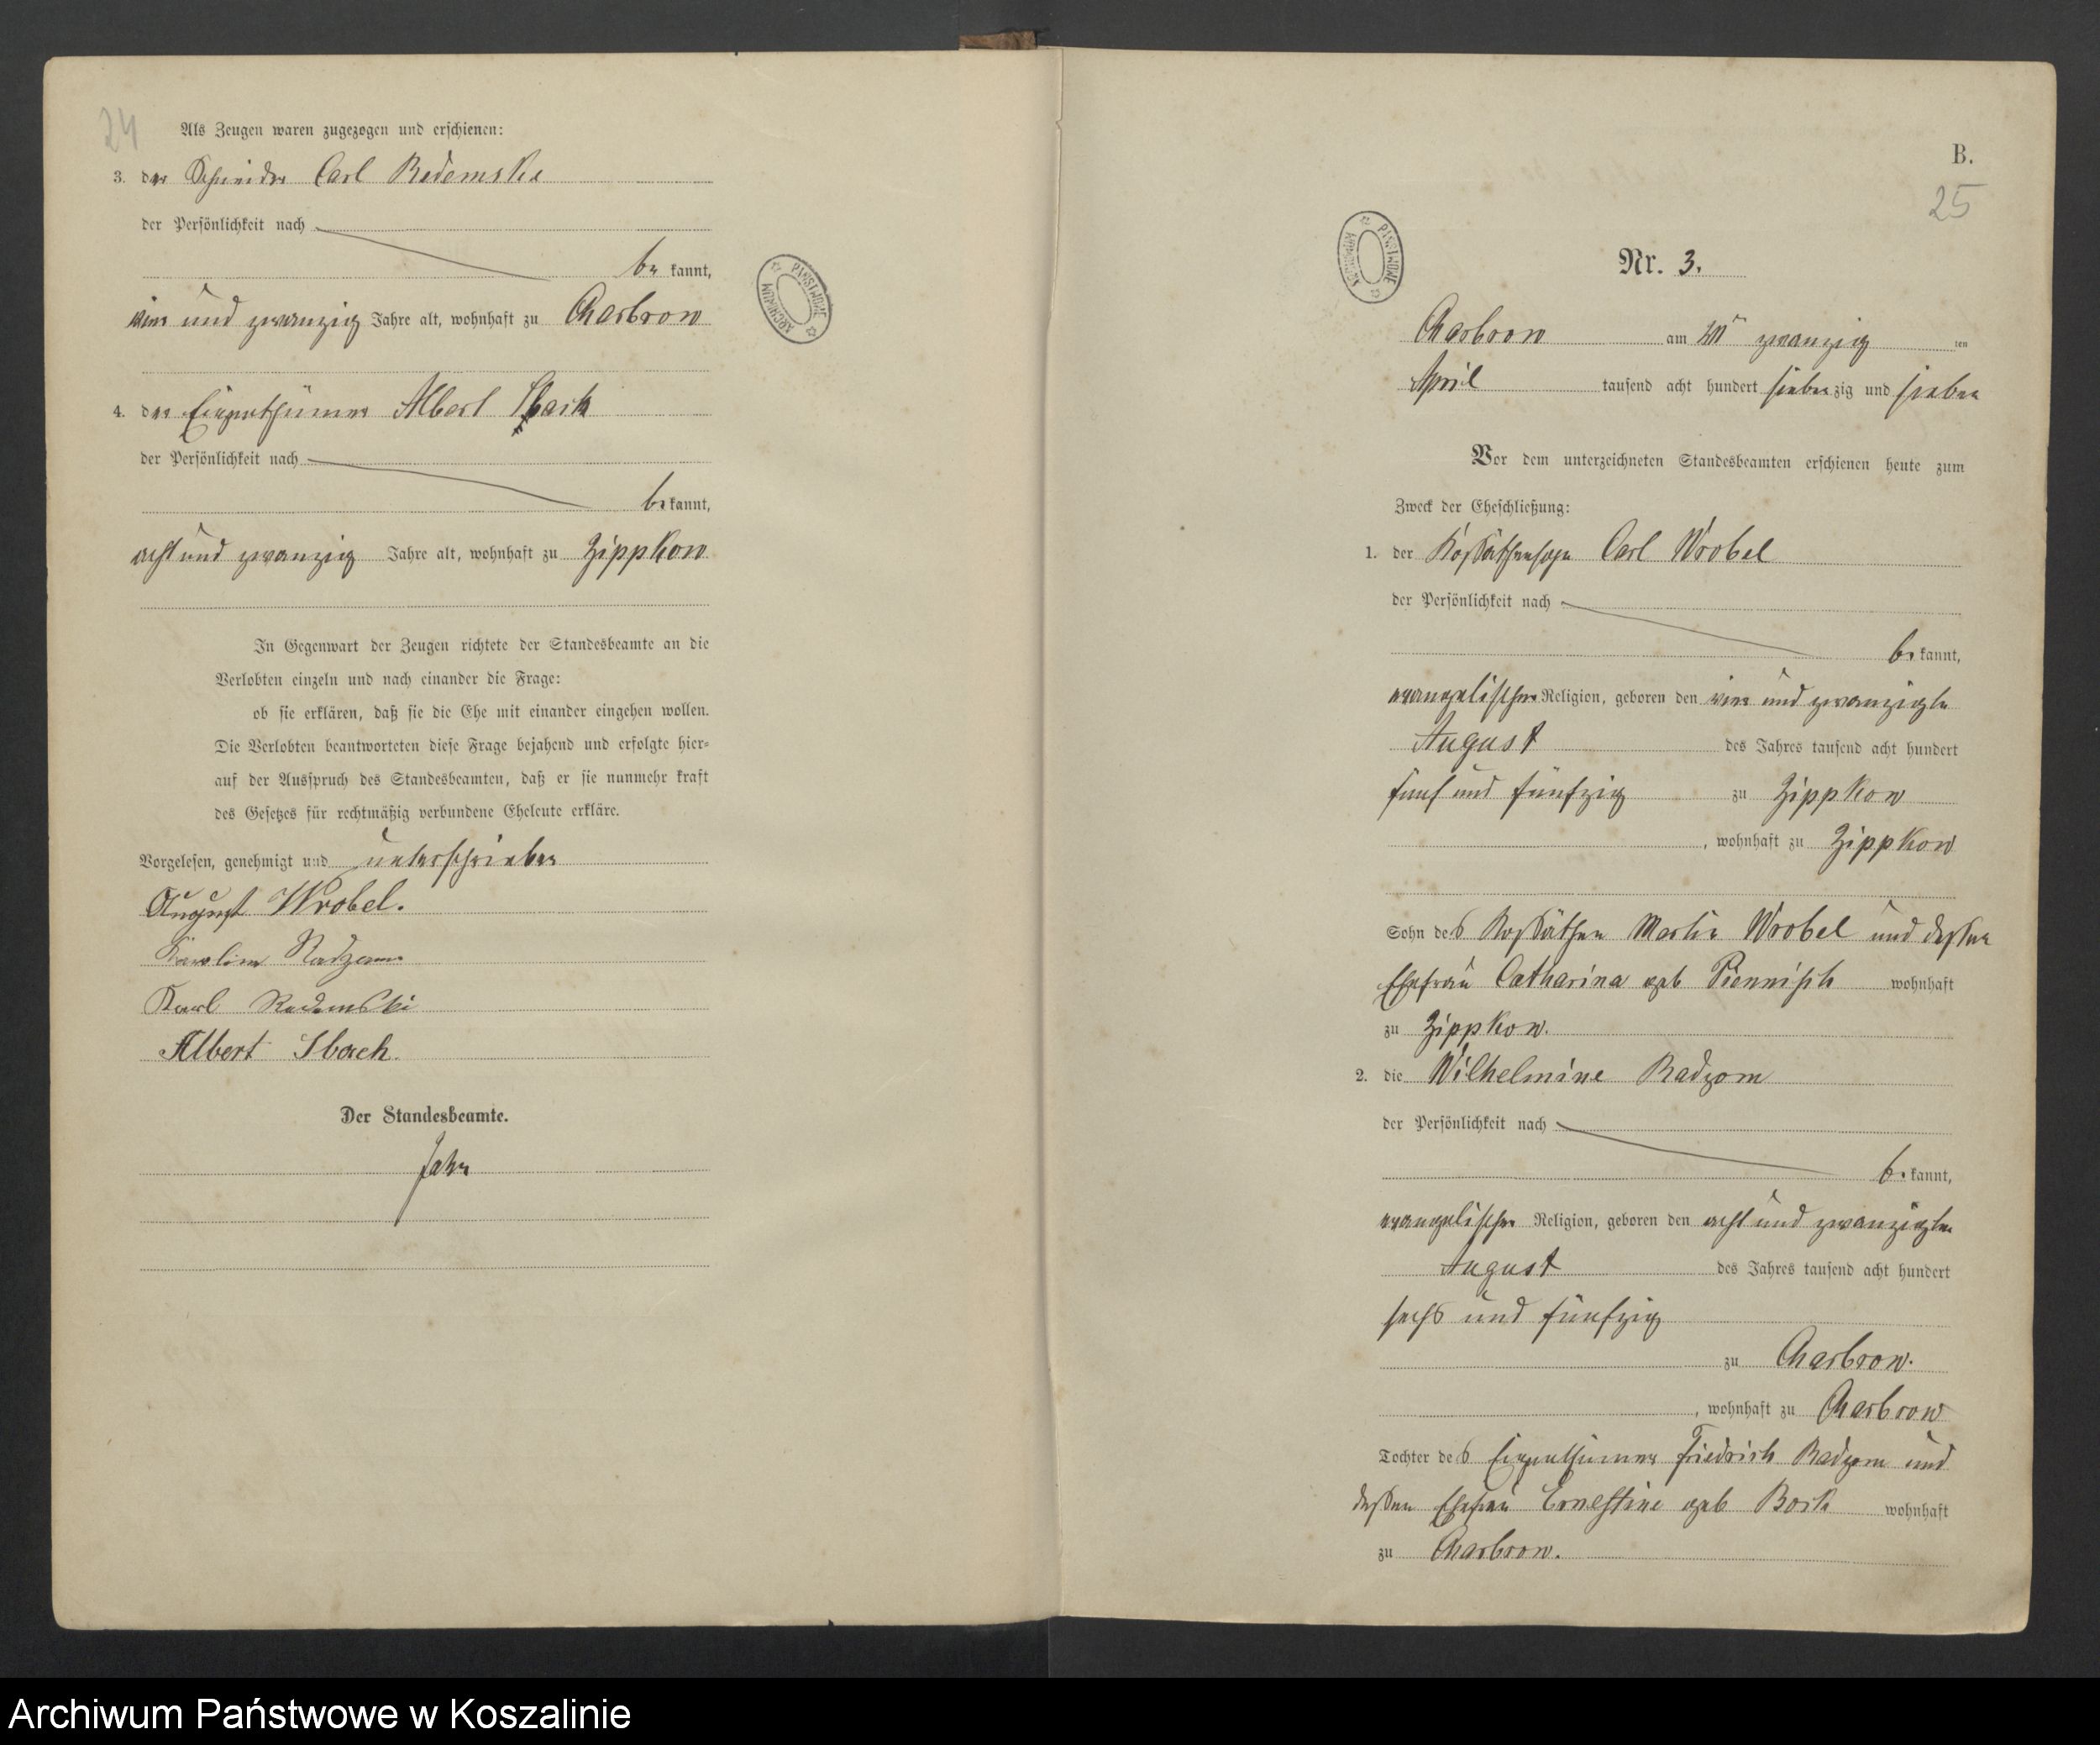 24
Als Zeugen waren zugezogen und erschienen:
3. der Schneider Carl Redemske
der Persönlichkeit nach
be kannt,
vier und zwanzig Jahre alt, wohnhaft zu Charbrow
4. der Eigenthümer Albert Sback
der Persönlichkeit nach
be kannt,
acht und zwanzig Jahre alt, wohnhaft zu Zippkow
In Gegenwart der Zeugen richtete der Standesbeamte an die
Verlobten einzeln und nach einander die Frage:
ob sie erklären, daß sie die Ehe mit einander eingehen wollen.
Die Verlobten beantworteten diese Frage bejahend und erfolgte hier-
auf der Ausspruch des Standesbeamten, daß er sie nunmehr kraft
des Gesetzes für rechtmäßig verbundene Eheleute erkläre.
Vorgelesen, genehmigt und unterschrieben
August Wrobel.
Karoline Radzom
Karl Redemski
Albert Sback.
Der Standesbeamte.
ARCHIWUM PAŃSTWOWE
B.
25
ARCHIWUM PAŃSTWOWE
Nr. 3.
Charbrow am zwanzig ten
April tausend acht hundert siebenzig und sieben
Vor dem unterzeichneten Standesbeamten erschienen heute zum
Zweck der Eheschließung:
1. der Kossäthensohn Carl Wrobel
der Persönlichkeit nach
be kannt,
evangelischer Religion, geboren den vier und zwanzigten
August des Jahres tausend acht hundert
fünf und fünfzig zu Zippkow
, wohnhaft zu Zippkow
Sohn des Kossäthen Martin Wrobel und dessen
Ehefrau Catharina geb wohnhaft
zu Zippkow.
2. die Wilhelmine Radzom
der Persönlichkeit nach
be kannt,
evangelischer Religion, geboren den acht und zwanzigten
August des Jahres tausend acht hundert
sechs und fünfzig
zu Charbrow.
, wohnhaft zu Charbrow
Tochter des Eigenthümer Friedrich Radzom und
dessen Ehefrau Ernestine geb Bork wohnhaft
zu Charbrow.
Archiwum Państwowe w Koszalinie